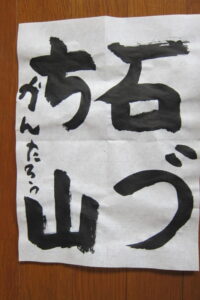 石づ
ち山
かんたろう